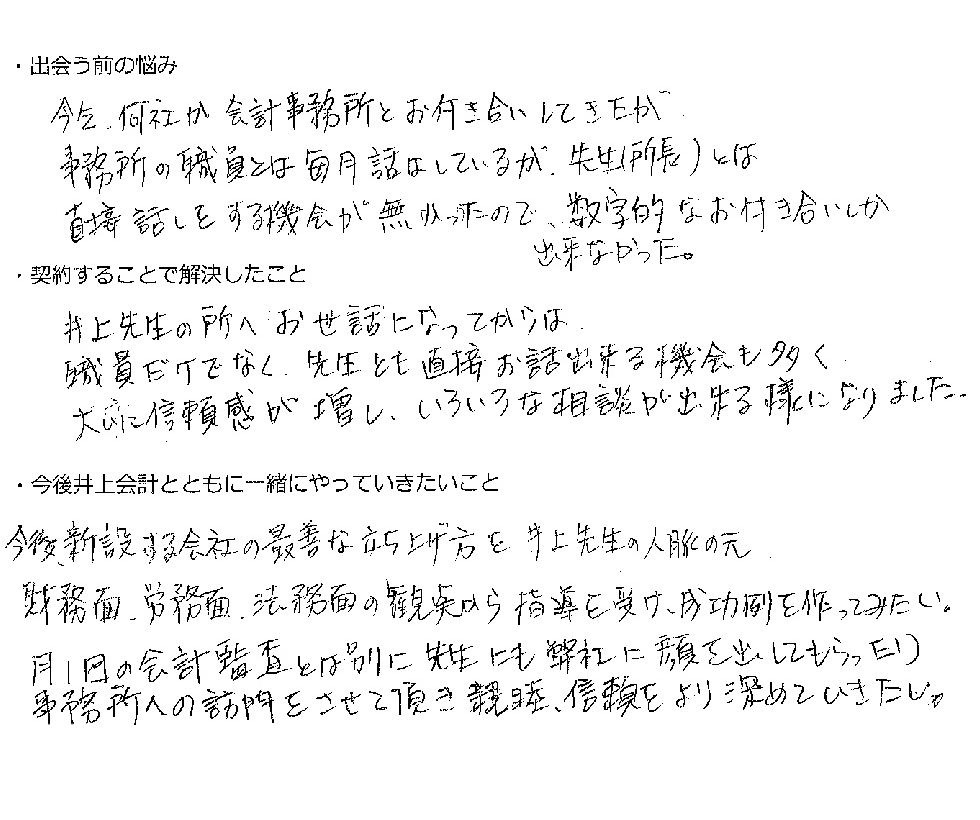 ・出会う前の悩み
今迄、何社か会計事務所とお付き合いしてきたが
事務所の職員とは毎月話はしているが、先生(所長)とは
直接話しをする機会が無かったので、数字的なお付き合いしか
出来なかった。
・契約することで解決したこと
井上先生の所へお世話になってからは
職員だけでなく、先生とも直接お話出来る機会も多く
大いに信頼感が増し、いろいろな相談が出来る様になりました。
・今後井上会計とともに一緒にやっていきたいこと
今後、新設する会社の最善な立ち上げ方を井上先生の人脈の元
財務面、労務面、法務面の観点から指導を受け、成功例を作ってみたい。
月1回の会計監査とは別に先生にも弊社に顔を出してもらったり
事務所への訪問をさせて頂き親睦、信頼をより深めていきたい。